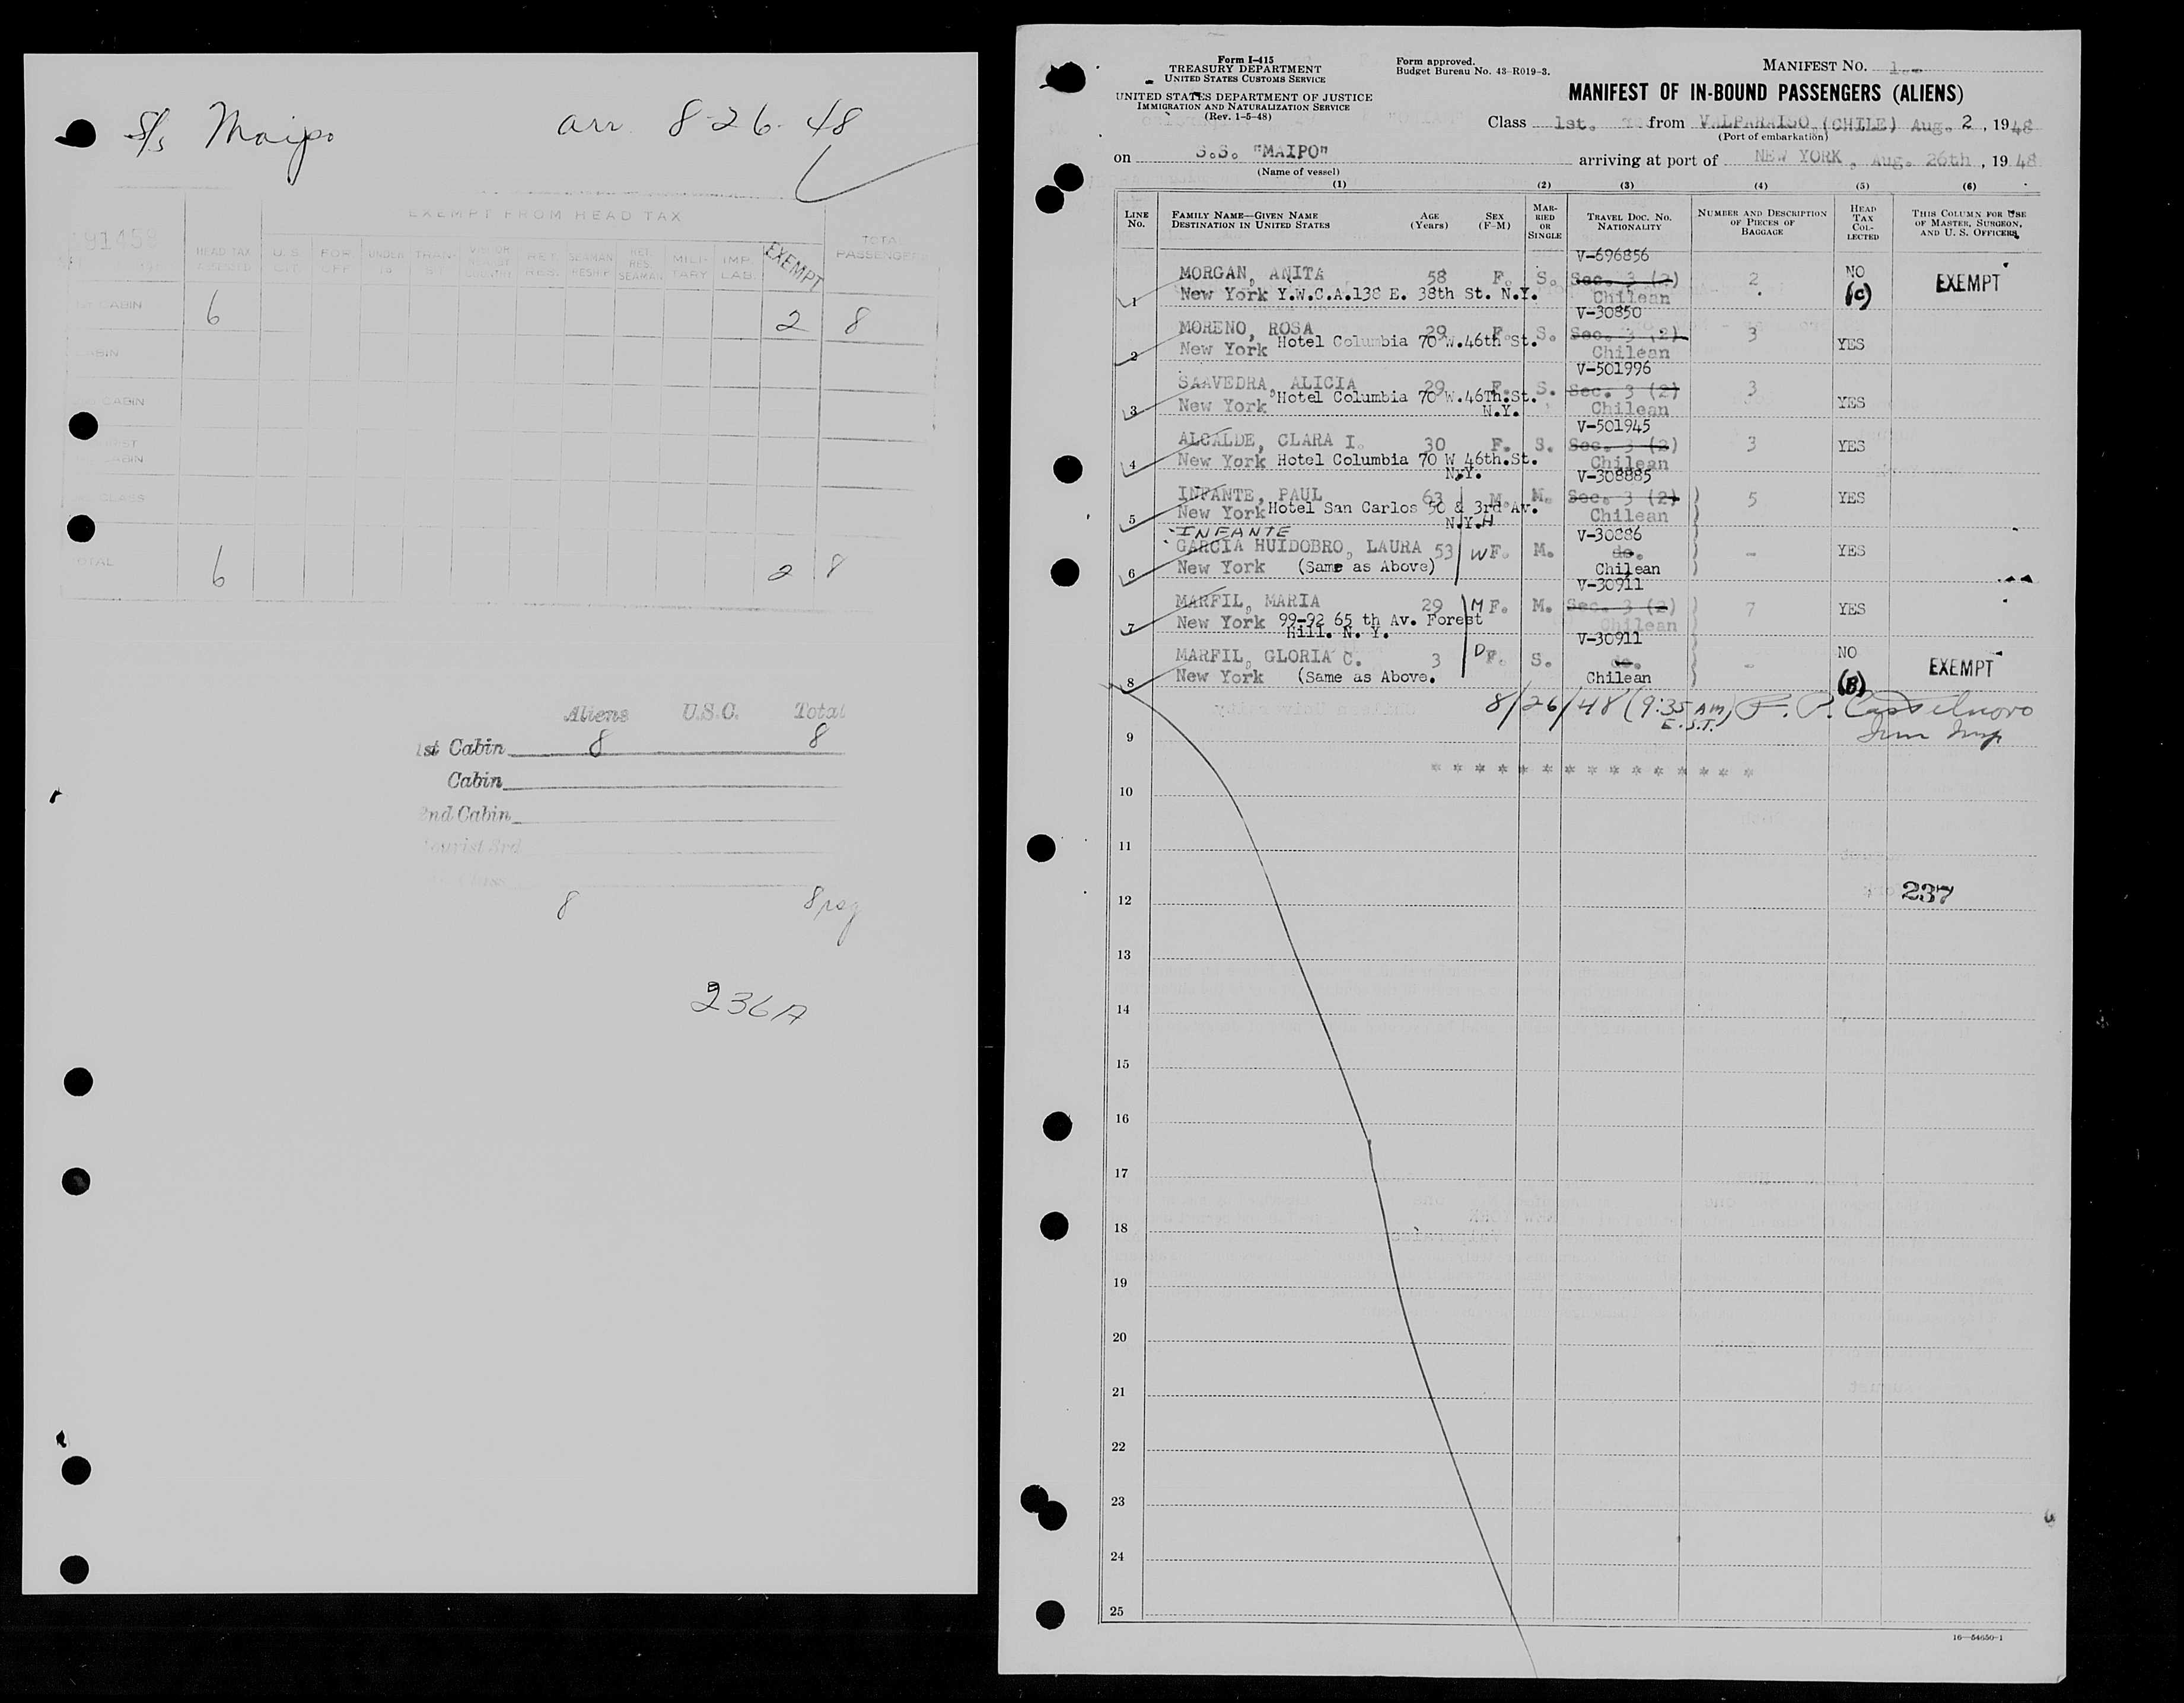 S/s Maipo arr. 8-26-48
91458
EXEMPT FROM HEAD TAX
HEAD TAX ASSESSED
U.S. CIT.
FOR. OFF.
UNDER 16
TRAN-
RET. RES.
SEAMAN
RET. RES. SEAMAN
MILI-TARY
IMP. LAB.
EXEMPT
TOTAL PASSENGERS
CABIN 6 2 8
CABIN
CABIN
CABIN
CLASS
TOTAL 6 2 8
Aliens U.S.C. Total
1st Cabin 8 8
Cabin
2nd Cabin
Tourist 3rd
Class
8 8 psg
236A
Form I-415
TREASURY DEPARTMENT
UNITED STATES CUSTOMS SERVICE
UNITED STATES DEPARTMENT OF JUSTICE
IMMIGRATION AND NATURALIZATION SERVICE
(Rev. 1-5-48)
Form approved.
Budget Bureau No. 43-R019-3.
MANIFEST No. 1
MANIFEST OF IN-BOUND PASSENGERS (ALIENS)
Class 1st. from VALPARAISO (CHILE) Aug. 2, 1948
(Port of embarkation)
on S.S. "MAIPO" arriving at port of NEW YORK, Aug. 26th, 1948
(Name of vessel)
(1) (2) (3) (4) (5) (6)
LINE No.
FAMILY NAME—GIVEN NAME
DESTINATION IN UNITED STATES
AGE (Years)
SEX (F-M)
MARRIED OR SINGLE
TRAVEL DOC. NO. NATIONALITY
NUMBER AND DESCRIPTION OF PIECES OF BAGGAGE
HEAD TAX COLLECTED
THIS COLUMN FOR USE OF MASTER, SURGEON, AND U. S. OFFICERS
V-696856
MORGAN, ANITA 58 F. S. Sec. 3 (2) 2 NO EXEMPT
1 New York Y.W.C.A.138 E. 38th St. N.Y. Chilean (C)
V-30850
MORENO, ROSA 29 F. S. Sec. 3 (2) 3
2 New York Hotel Columbia 70 W.46th St. Chilean YES
V-501996
SAAVEDRA, ALICIA 29 F. S. Sec. 3 (2) 3
3 New York Hotel Columbia 70 W.46Th.St. N.Y. Chilean YES
V-501945
ALCALDE, CLARA I. 30 F. S. Sec. 3 (2) 3 YES
4 New York Hotel Columbia 70 W 46th.St. N.Y. Chilean
V-308885
INFANTE, PAUL 63 M. M. Sec. 3 (2) 5 YES
5 New York Hotel San Carlos 50 & 3rd Av. N.Y. H Chilean
INFANTE V-30886
GARCIA HUIDOBRO, LAURA 53 W F. M. do. - YES
6 New York (Same as Above) Chilean
V-30911
MARFIL, MARIA 29 M F. M. Sec. 3 (2) 7 YES
7 New York 99-92 65 th Av. Forest Chilean
Hill. N. Y. V-30911
MARFIL, GLORIA C. 3 D F. S. do. - NO EXEMPT
8 New York (Same as Above. Chilean (B)
8/26/48 (9:35 AM E.S.T.) P. P. Casselnovo
Imm Insp
9
* * * * * * * * * * * * * * *
10
11
12 237
13
14
15
16
17
18
19
20
21
22
23
24
25
16—54650-1